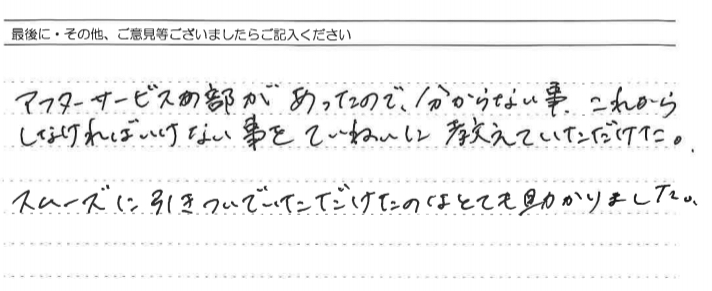 最後に・その他、ご意見等ございましたらご記入ください
アフターサービスの部があったので、分からない事、これから
しなければいけない事をていねいに教えていただけた。
スムーズに引きついでいただけたのはとても助かりました。